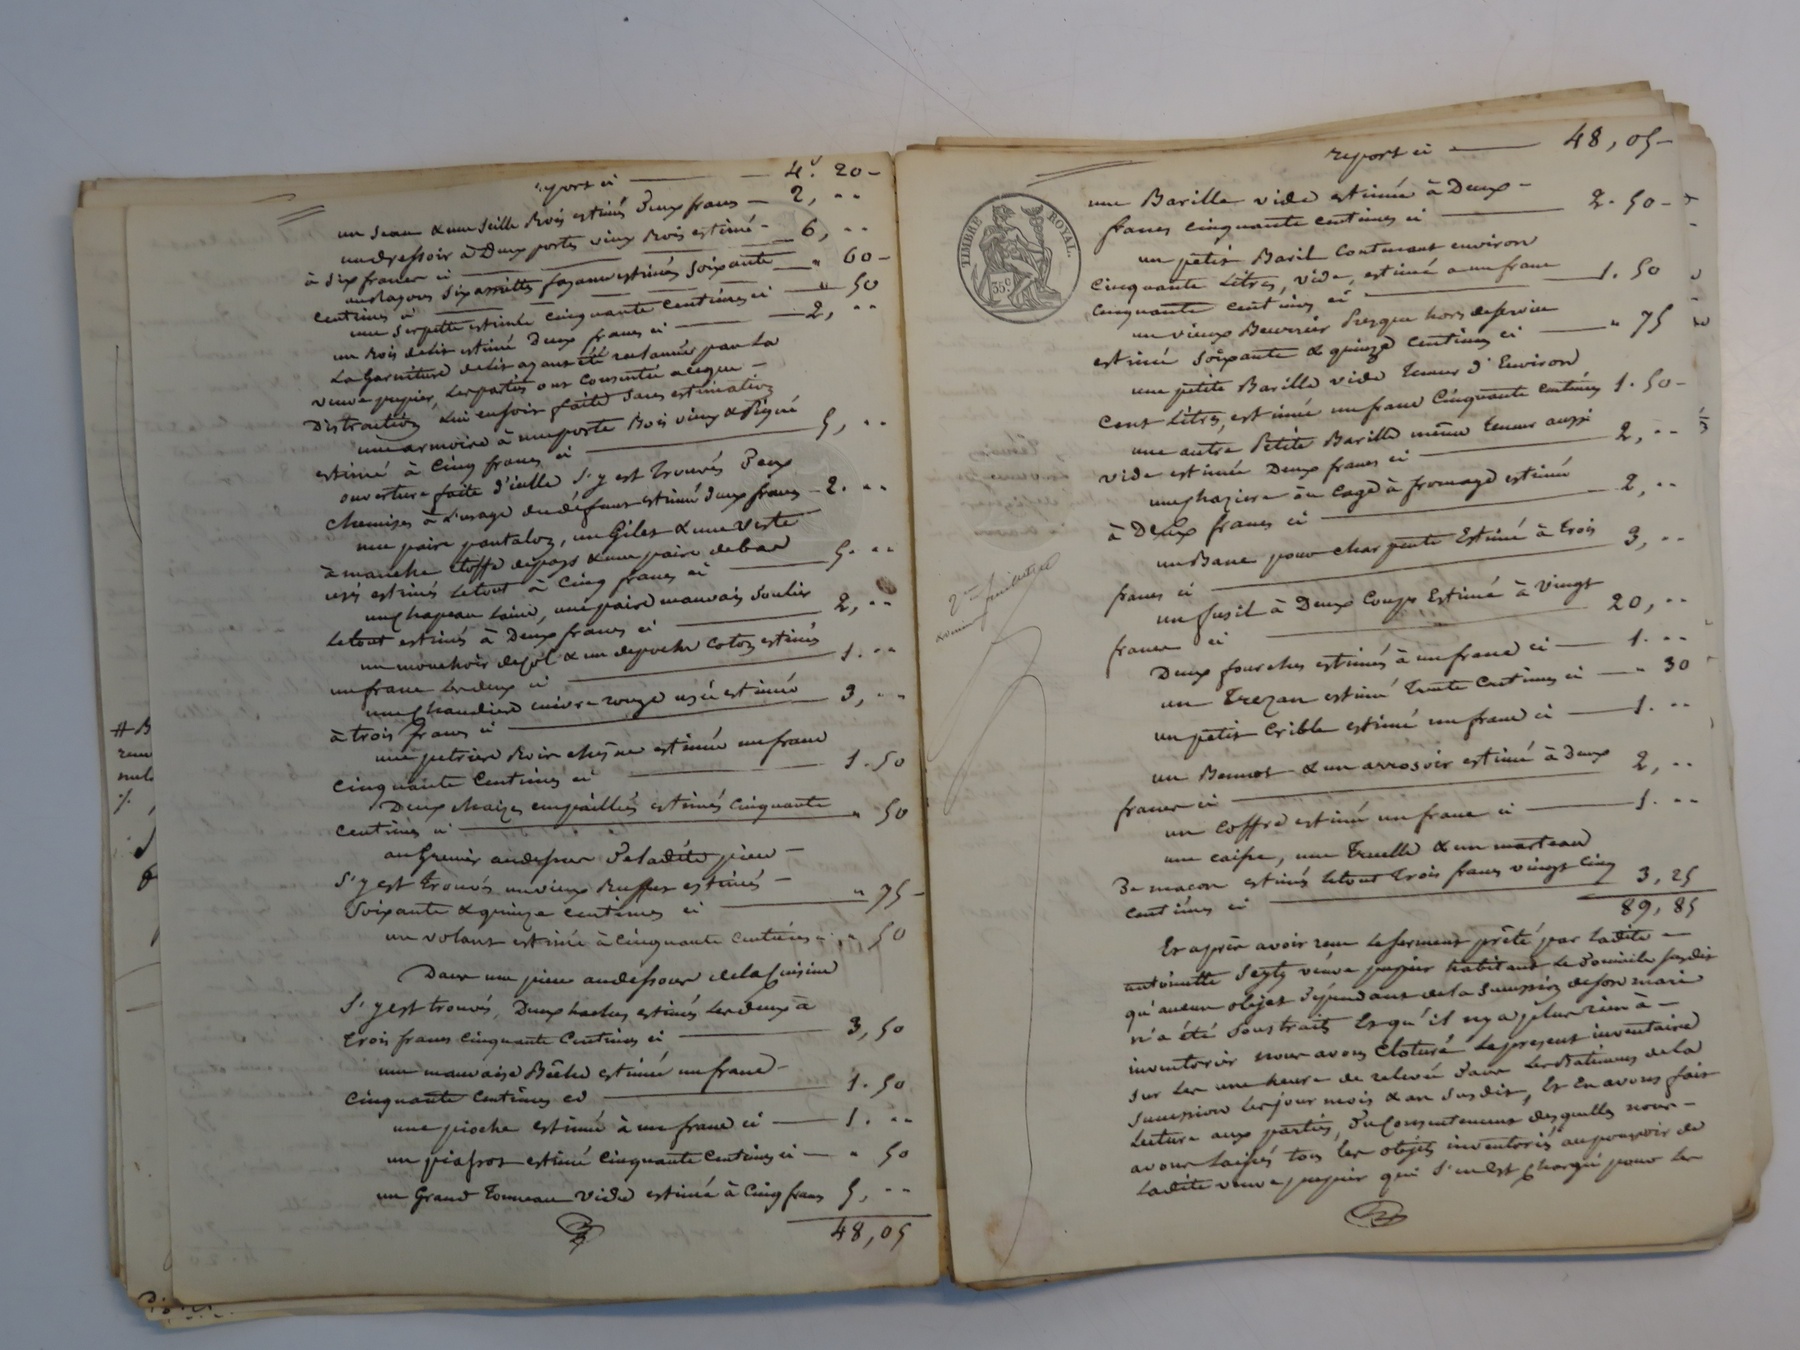 report ci — 4. 20 -
un seau & une seille Bois estimés Deux francs — 2, "
un dressoir à Deux portes vieux Bois estimé -
à six francs ci — 6, "
six assiettes fayance estimés soixante
centimes ci — " 60 -
une serpette estimée cinquante centimes ci — " 50
un Bois de lit estimé Deux francs ci — 2, "
La Garniture de lit ayant été réclamée par la
veuve papier, les parties ont consenti a ce que -
Distraction lui en soit faite sans estimation
une armoire à une porte Bois vieux & Piqué
estimé à Cinq francs ci — 5, "
ouverture faite d'icelle s'y est trouvés Deux
chemises à l'usage du défunt estimé deux francs - 2. "
une paire pantalon, un Gilet & une veste
à manche étoffe du pays & une paire de bas
usés estimés le tout à Cinq francs ci — 5. "
un chapeau laine, une paire mauvais soulier
le tout estimés à Deux francs ci — 2, "
un mouchoir de col & un de poche coton estimés
un franc les deux ci — 1. "
une chaudière cuivre rouge usée estimée
à trois francs ci — 3, "
une petrière Bois chêsne estimée un franc
cinquante centimes ci — 1. 50
Deux chaizes empaillées estimés cinquante
centimes ci — " 50
au Grenier au dessus de la dite pièce -
s'y est trouvés un vieux Buffet estimés -
soixante & quinze centimes ci — " 75 -
un volant estimé à cinquante centimes ci " 50
Dans une pièce au dessous de la Cuisine
s'y est trouvés, Deux haches estimés les deux à
trois francs cinquante Centimes ci — 3, 50
une mauvaise Bêche estimée un franc -
cinquante centimes ci — 1. 50
une pioche estimée à un franc ci — 1. "
un piassot estimé cinquante centimes ci — " 50
un Grand Tonneau vide estimé à Cinq francs 5, "
48,05
report ci — 48,05 -
TIMBRE ROYAL
35c
une Barille vide estimée à Deux -
francs cinquante centimes ci — 2. 50 -
un petit Baril contenant environ
cinquante litres, vide, estimé a un franc
cinquante centimes ci — 1. 50
un vieux Beurrier Presque hors de service
estimé soixante & quinze centimes ci — " 75
une petite Barille vide teneur d'Environ
cent litres, estimée un franc Cinquante centimes 1. 50 -
une autre Petite Barille même teneur aussi
vide estimée Deux francs ci — 2, "
une chaziere ou cage à fromage estimé
à Deux francs ci — 2, "
un Banc pour charpente Estimé à trois
francs ci — 3, "
un fusil à Deux Coups Estimé à vingt
francs ci — 20, "
Deux fourches estimés à un franc ci — 1. "
un Trezan estimé trente Centimes ci — " 30
un petit Crible estimé un franc ci — 1. "
un Bennot & un arrosoir estimé à Deux
francs ci — 2, "
un Coffre estimé un franc ci — 1. "
une caisse, une Truelle & un marteau
De macon estimés le tout trois francs vingt cinq
centimes ci — 3,25
89,85
Et après avoir reçu le serment prêté par ladite -
antoinette veuve papier habitant le Domicile susdit
qu'aucun objet dépendant de la succession de son mari
n'a été soustrait Et qu'il n'y a plus rien à -
inventorier nous avons Cloturé le present inventaire
sur les une heure de relevée dans les Batiments de la
succession les jour mois & an susdit, Et En avons fait
lecture aux parties, du Consentement desquelles nous -
avons laissés tous les objets inventoriés au pouvoir de
ladite veuve papier qui s'en est chargée pour les